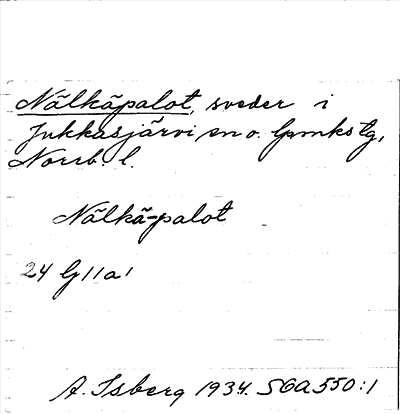 Nälkäpalot, sveder i
Jukkasjärvi sn o. lpmkstg,
Norrb. l.
Nälkä-palot
24 G 11 a 1
A. Isberg 1934. S6A550:1